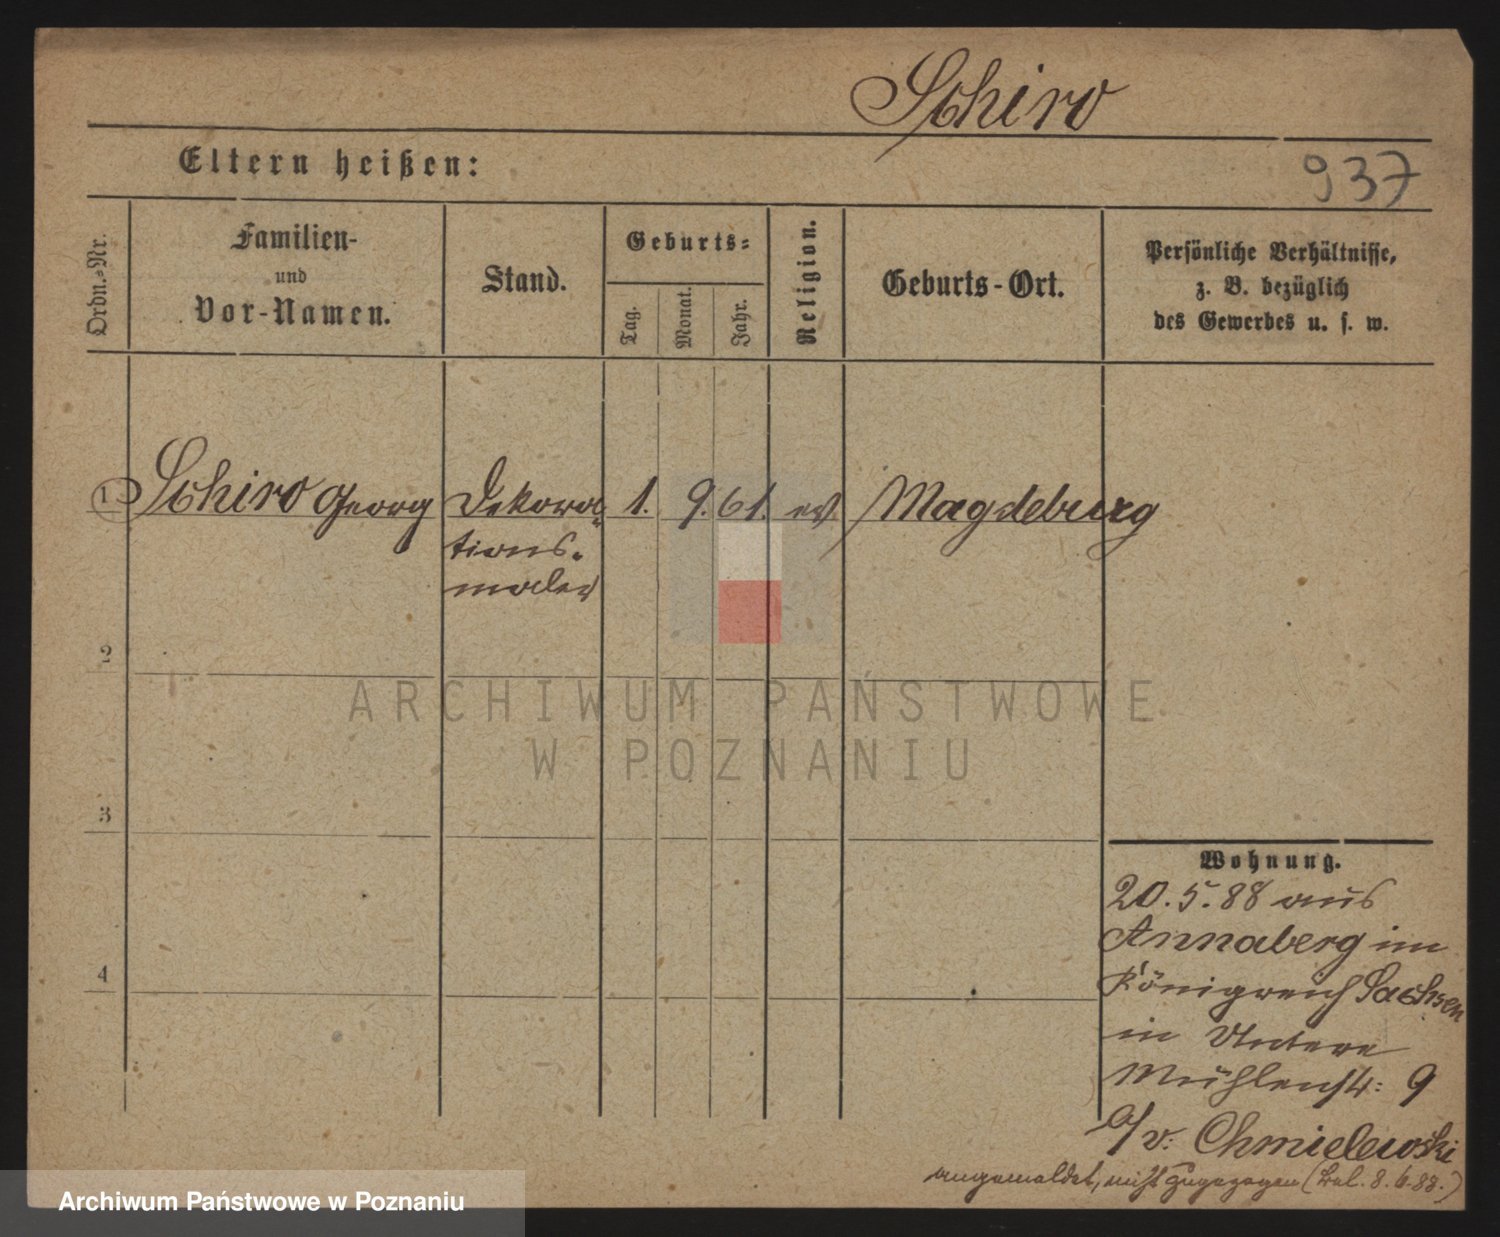 Schiro
Eltern heißen:
937
Ordn.-Nr.
Familien-
und
Vor-Namen.
Stand.
Geburts-
Tag.
Monat.
Jahr.
Religion.
Geburts-Ort.
Persönliche Verhältnisse,
z. B. bezüglich
des Gewerbes u. s. w.
1 Schiro Georg Dekora- 1. 9. 61. ev Magdeburg
tions-
maler
2
ARCHIWUM PAŃSTWOWE
W POZNANIU
3
4
Wohnung.
20. 5. 88 aus
Annaberg im
Königreich Sachsen
in Untere
Mühlenstr: 9
b/v: Chmielewski
angemeldet, nicht zugezogen (8. 6. 88.)
Archiwum Państwowe w Poznaniu